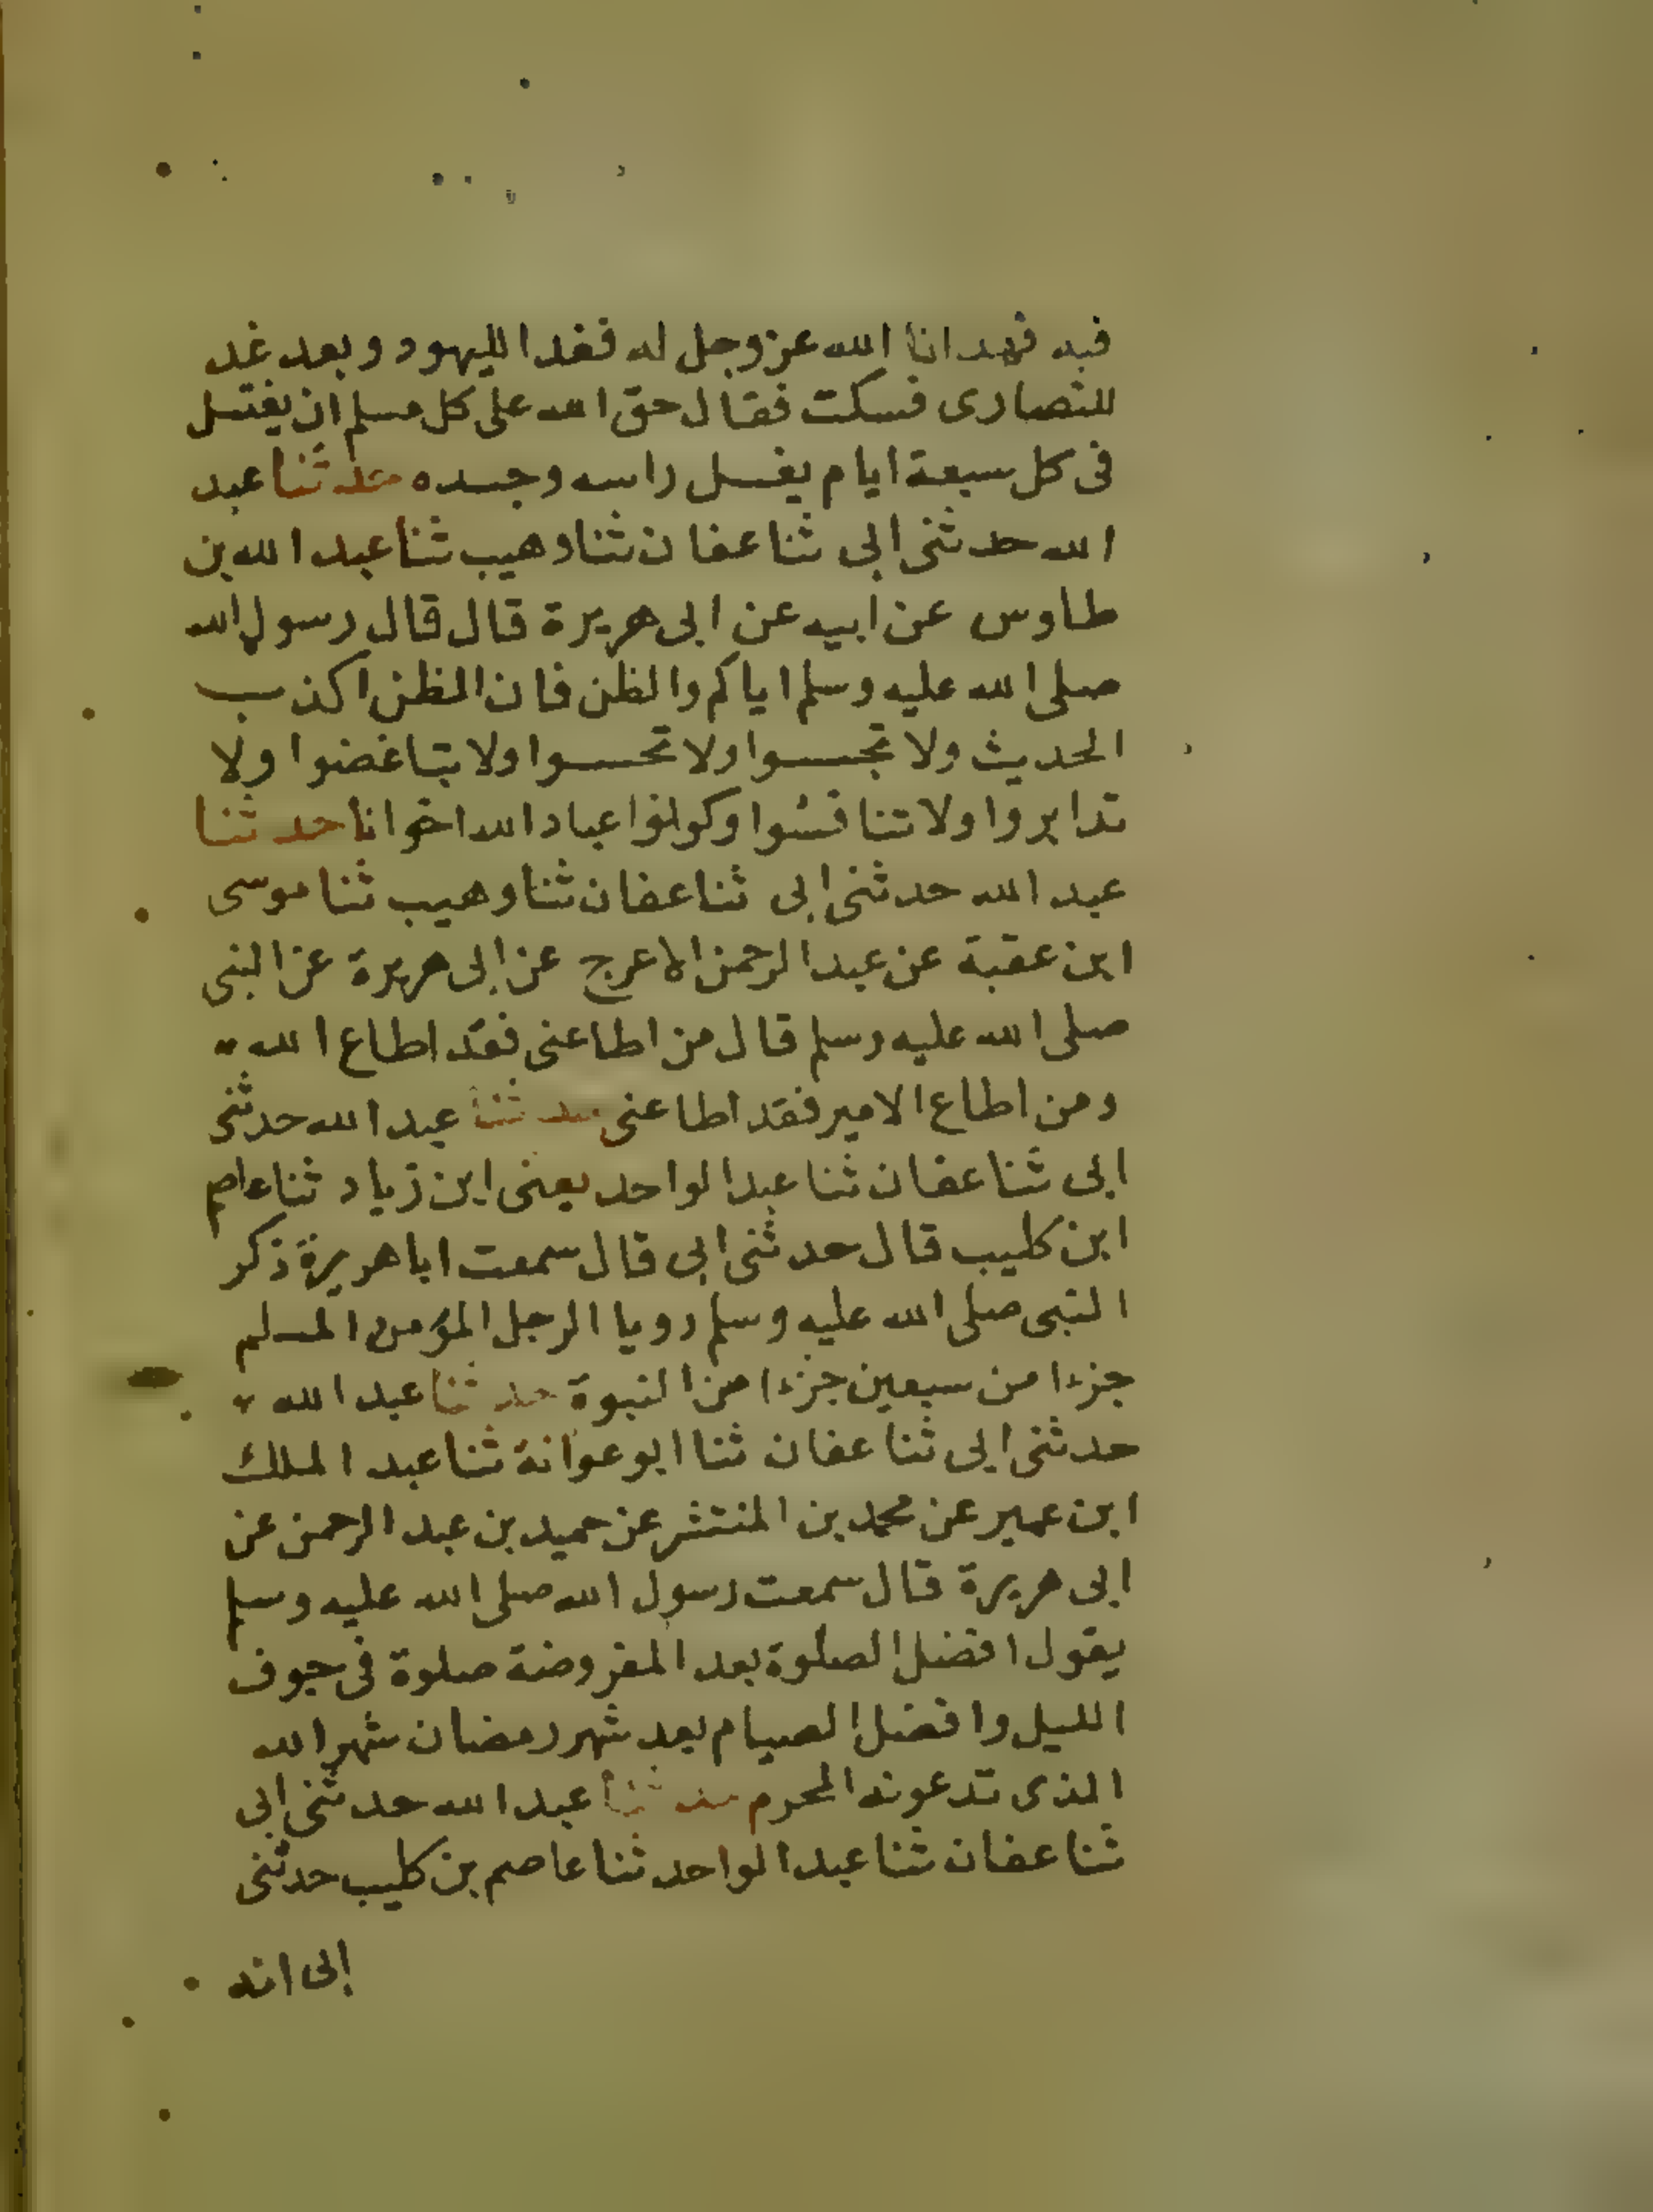 فيه فهدانا الله عز وجل له فغدا لليهود وبعد غد
للنصارى فسكت فقال حق الله على كل مسلم ان يغتسل
فى كل سبعة ايام يغسل راسه وجسده حدثنا عبد
الله حدثنى ابى ثنا عفان ثنا وهيب ثنا عبد الله بن
طاوس عن ابيه عن ابى هريرة قال قال رسول الله
صلى الله عليه وسلم اياكم والظن فان الظن اكذب
الحديث ولا تجسسوا ولا تحسسوا ولا تباغضوا ولا
تدابروا ولا تنافسوا وكونوا عباد الله اخوانا حدثنا
عبد الله حدثنى ابى ثنا عفان ثنا وهيب ثنا موسى
ابن عقبة عن عبد الرحمن الاعرج عن ابى هريرة عن النبى
صلى الله عليه وسلم قال من اطاعنى فقد اطاع الله
ومن اطاع الامير فقد اطاعنى حدثنا عبد الله حدثنى
ابى ثنا عفان ثنا عبد الواحد يعنى ابن زياد ثنا عاصم
ابن كليب قال حدثنى ابى قال سمعت ابا هريرة ذكر
النبى صلى الله عليه وسلم رويا الرجل المؤمن المسلم
جزءا من سبعين جزءا من النبوة حدثنا عبد الله
حدثنى ابى ثنا عفان ثنا ابو عوانة ثنا عبد الملك
ابن عمير عن محمد بن المنتشر عن حميد بن عبد الرحمن عن
ابى هريرة قال سمعت رسول الله صلى الله عليه وسلم
يقول افضل الصلوة بعد المفروضة صلوة فى جوف
الليل وافضل الصيام بعد شهر رمضان شهر الله
الذى تدعونه المحرم حدثنا عبد الله حدثنى ابى
ثنا عفان ثنا عبد الواحد ثنا عاصم بن كليب حدثنى
ابى انه